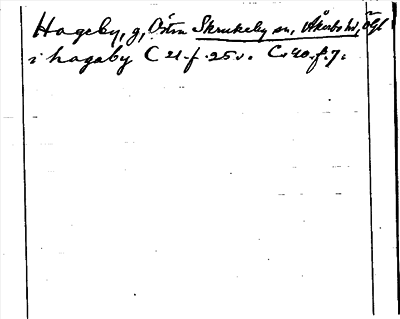 Hageby, g, Östra Skrukeby sn, Åkerbo hd, Ögl
i hagaby C 21. f. 25 v. C 40. f. 7.